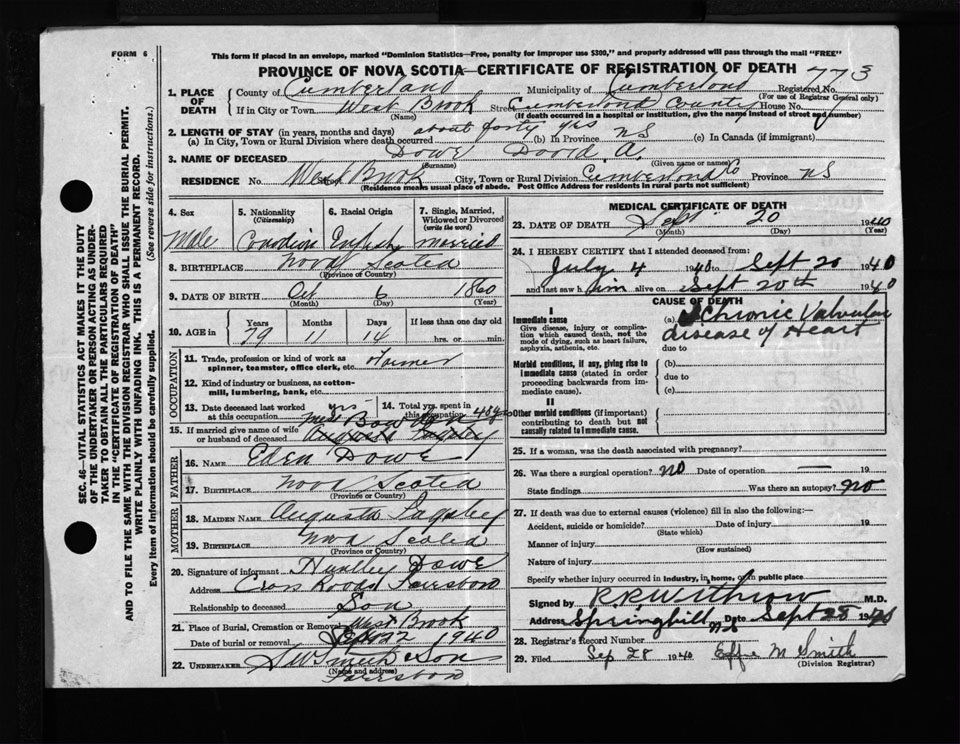 FORM 6
This form if placed in an envelope, marked "Dominion Statistics—Free, penalty for improper use $300," and properly addressed will pass through the mail "FREE"
PROVINCE OF NOVA SCOTIA—CERTIFICATE OF REGISTRATION OF DEATH 773
1. PLACE OF DEATH County of Cumberland Municipality of Cumberland Registered No.
(For use of Registrar General only)
If in City or Town West Brook Street Cumberland County House No.
(Name) (If death occurred in a hospital or institution, give the name instead of street and number)
2. LENGTH OF STAY (in years, months and days) about forty yrs
(a) In City, Town or Rural Division where death occurred (b) In Province NS (c) In Canada (if immigrant)
3. NAME OF DECEASED Dowe David A.
(Surname) (Given name or names)
RESIDENCE No. West Brook City, Town or Rural Division Cumberland Co Province NS
(Residence means usual place of abode. Post Office Address for residents in rural parts not sufficient)
4. Sex 5. Nationality (Citizenship) 6. Racial Origin 7. Single, Married, Widowed or Divorced (write the word)
Male Canadian English married
8. BIRTHPLACE Nova Scotia
(Province or Country)
9. DATE OF BIRTH Oct 6 1860
(Month) (Day) (Year)
10. AGE in Years Months Days If less than one day old
79 11 14 hrs. or min.
OCCUPATION
11. Trade, profession or kind of work as spinner, teamster, office clerk, etc. Farmer
12. Kind of industry or business, as cotton-mill, lumbering, bank, etc.
13. Date deceased last worked at this occupation 14. Total yrs. spent in this occupation
15. If married give name of wife or husband of deceased Augusta
FATHER
16. NAME Eden Dowe
17. BIRTHPLACE Nova Scotia
(Province or Country)
MOTHER
18. MAIDEN NAME Augusta
19. BIRTHPLACE Nova Scotia
(Province or Country)
20. Signature of informant Huntley Dowe
Address Cross Roads Parrsboro
Relationship to deceased Son
21. Place of Burial, Cremation or Removal West Brook
Date of burial or removal Sept 22 1940
22. UNDERTAKER & Son
(Name and address)
Parrsboro
MEDICAL CERTIFICATE OF DEATH
23. DATE OF DEATH Sept 20 1940
(Month) (Day) (Year)
24. I HEREBY CERTIFY that I attended deceased from:
July 4 1940 to Sept 20 1940
and last saw him alive on Sept 20th 1940
CAUSE OF DEATH
I
Immediate cause (a) Chronic Valvular
Give disease, injury, or complication which caused death, not the mode of dying, such as heart failure, asphyxia, asthenia, etc. disease of Heart
due to
Morbid conditions, if any, giving rise to immediate cause (stated in order proceeding backwards from immediate cause). (b)
due to
(c)
II
Other morbid conditions (if important) contributing to death but not causally related to immediate cause.
25. If a woman, was the death associated with pregnancy?
26. Was there a surgical operation? no Date of operation — 19
State findings Was there an autopsy? no
27. If death was due to external causes (violence) fill in also the following:—
Accident, suicide or homicide? Date of injury 19
(State which)
Manner of injury
(How sustained)
Nature of injury
Specify whether injury occurred in industry, in home, or in public place
Signed by R R Withrow M.D.
Address Springhill NS Date Sept 28 1940
28. Registrar's Record Number
29. Filed Sep 28 1940 Effie M Smith
(Division Registrar)
SEC. 46—VITAL STATISTICS ACT MAKES IT THE DUTY
OF THE UNDERTAKER OR PERSON ACTING AS UNDERTAKER TO OBTAIN ALL THE PARTICULARS REQUIRED
IN THE "CERTIFICATE OF REGISTRATION OF DEATH"
AND TO FILE THE SAME WITH THE DIVISION REGISTRAR WHO SHALL ISSUE THE BURIAL PERMIT.
WRITE PLAINLY WITH UNFADING INK. THIS IS A PERMANENT RECORD.
Every item of information should be carefully supplied. (See reverse side for instructions.)